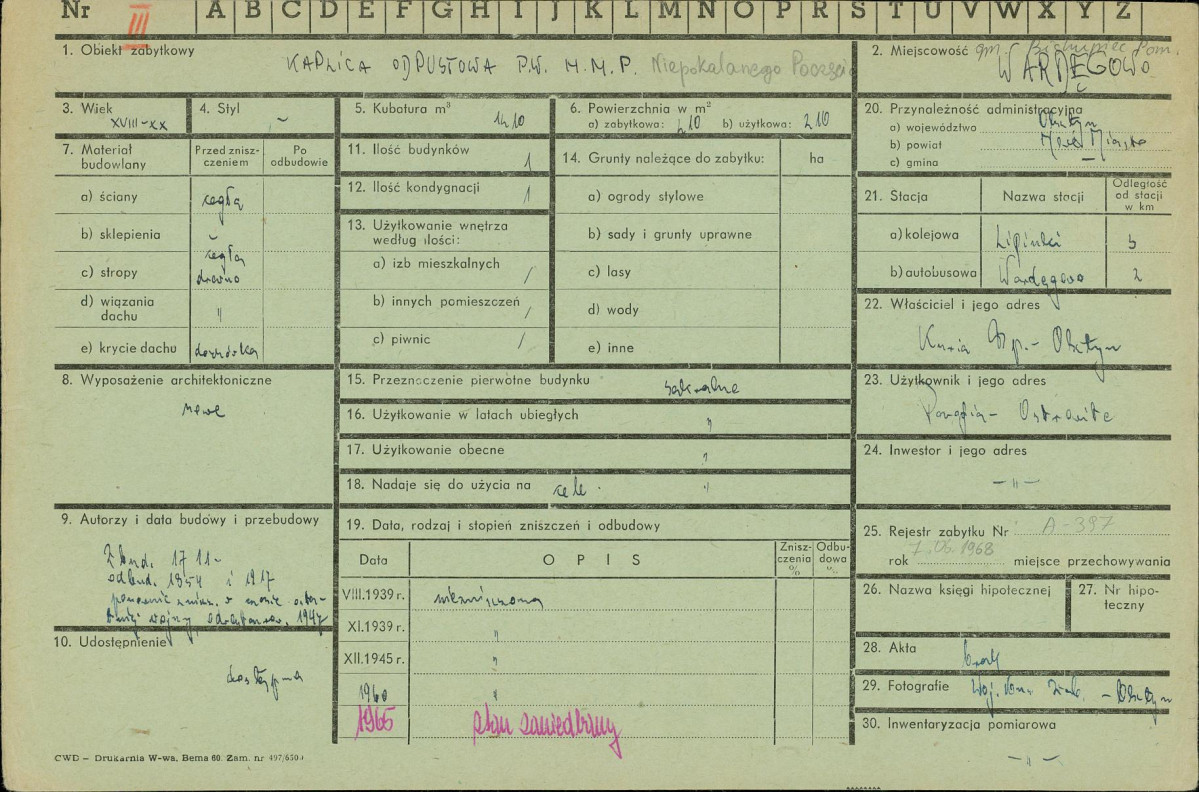 Nr III A B C D E F G H I J K L M N O P R S T U V W X Y Z
1. Obiekt zabytkowy
KAPLICA ODPUSTOWA P.W. M.M.P. Niepokalanego Poczęcia
2. Miejscowość gm. Biskupiec Pom.
WARDĘGOWO
3. Wiek
XVIII-XX
4. Styl
~
5. Kubatura m³
1410
6. Powierzchnia w m²
a) zabytkowa: 210 b) użytkowa: 210
20. Przynależność administracyjna
a) województwo Olsztyn
b) powiat Nowe Miasto
c) gmina —
7. Materiał budowlany
Przed zniszczeniem
Po odbudowie
a) ściany cegła
b) sklepienia cegła
c) stropy drewno
d) wiązania dachu "
e) krycie dachu dachówka
11. Ilość budynków 1
12. Ilość kondygnacji 1
13. Użytkowanie wnętrza według ilości:
a) izb mieszkalnych /
b) innych pomieszczeń /
c) piwnic /
14. Grunty należące do zabytku: ha
a) ogrody stylowe
b) sady i grunty uprawne
c) lasy
d) wody
e) inne
21. Stacja
Nazwa stacji
Odległość od stacji w km
a) kolejowa Lipinki 5
b) autobusowa Wardęgowo 2
22. Właściciel i jego adres
Kuria Bp. - Olsztyn
8. Wyposażenie architektoniczne
nowe
15. Przeznaczenie pierwotne budynku sakralne
16. Użytkowanie w latach ubiegłych "
17. Użytkowanie obecne "
18. Nadaje się do użycia na cele "
23. Użytkownik i jego adres
Parafia - Ostrowite
24. Inwestor i jego adres
— " —
9. Autorzy i data budowy i przebudowy
Zbud. 1711-
odbud. 1854 i 1917
ponownie zniszcz. w czasie ostatniej wojny, 1947
19. Data, rodzaj i stopień zniszczeń i odbudowy
Data
OPIS
Zniszczenia %
Odbudowa %
VIII.1939 r. niezniszczona
XI.1939 r. "
XII.1945 r. "
1960 "
1965 stan zaniedbany
25. Rejestr zabytku Nr A-397
rok 7.06.1968 miejsce przechowywania
26. Nazwa księgi hipotecznej
27. Nr hipoteczny
10. Udostępnienie
dostępna
28. Akta brak
29. Fotografie Woj. Kons. Zab. - Olsztyn
30. Inwentaryzacja pomiarowa
— " —
CWD – Drukarnia W-wa, Bema 60. Zam. nr 497/6500